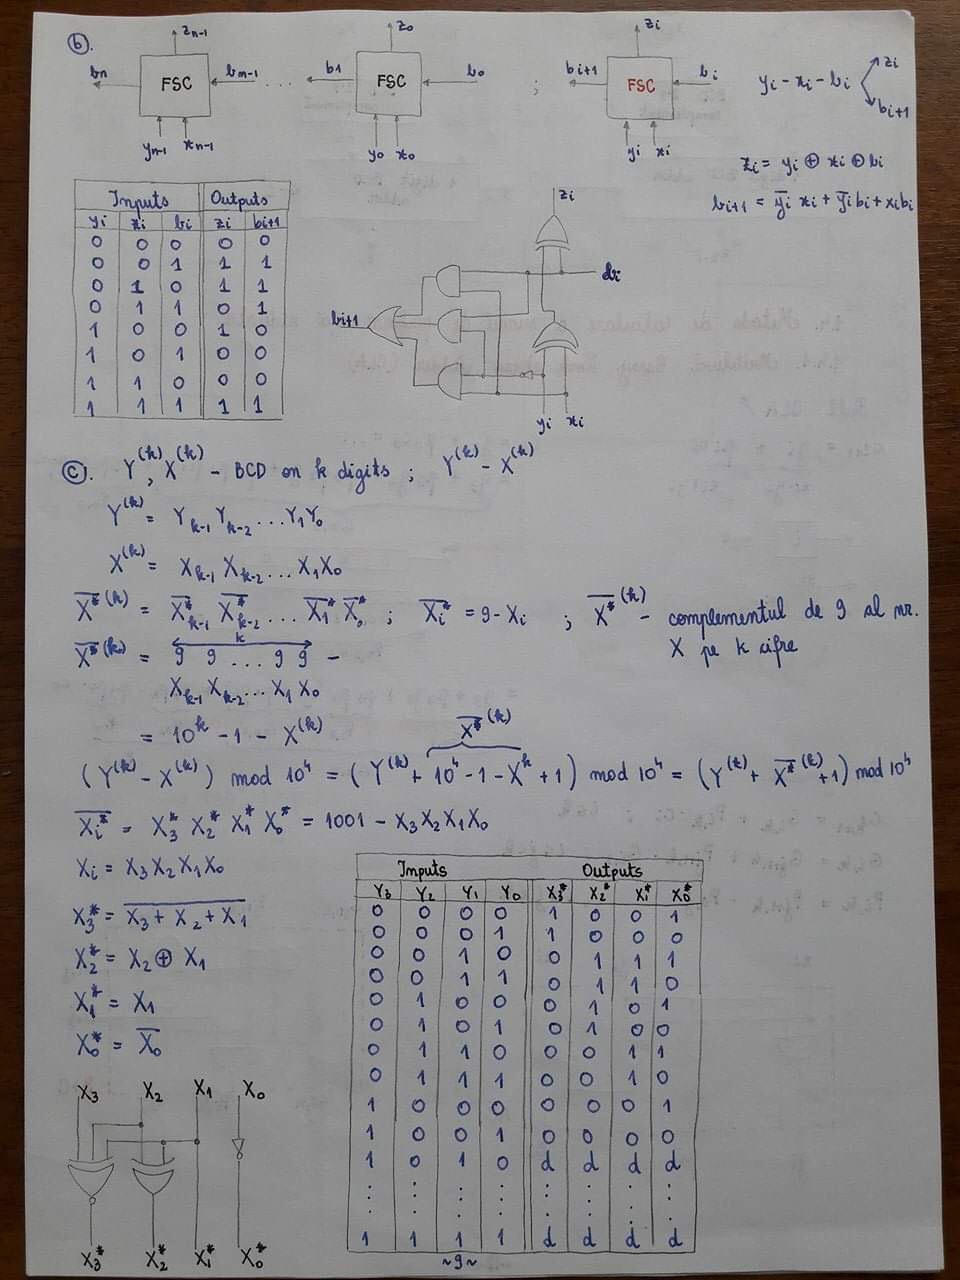 b).
z_{n-1} z_0 z_i
b_n FSC b_{n-1} ... b_1 FSC b_0 ; b_{i+1} FSC b_i y_i - x_i - b_i z_i b_{i+1}
y_{n-1} x_{n-1} y_0 x_0 y_i x_i
z_i = y_i ⊕ x_i ⊕ b_i
b_{i+1} = \overline{y_i} x_i + \overline{y_i} b_i + x_i b_i
Inputs Outputs
y_i x_i b_i z_i b_{i+1}
0 0 0 0 0
0 0 1 1 1
0 1 0 1 1
0 1 1 0 1
1 0 0 1 0
1 0 1 0 0
1 1 0 0 0
1 1 1 1 1
z_i
b_i
b_{i+1}
y_i x_i
c). Y^{(k)}, X^{(k)} - BCD on k digits ; Y^{(k)} - X^{(k)}
Y^{(k)} = Y_{k-1} Y_{k-2} ... Y_1 Y_0
X^{(k)} = X_{k-1} X_{k-2} ... X_1 X_0
\overline{X^*}^{(k)} = \overline{X^*_{k-1}} \overline{X^*_{k-2}} ... \overline{X^*_1} \overline{X^*_0} ; \overline{X_i^*} = 9 - X_i ; \overline{X^*}^{(k)} - complementul de 9 al nr.
X pe k cifre
k
\overline{X^*}^{(k)} = 9 9 ... 9 9 -
X_{k-1} X_{k-2} ... X_1 X_0
= 10^k - 1 - X^{(k)}
\overline{X^*}^{(k)}
(Y^{(k)} - X^{(k)}) mod 10^4 = (Y^{(k)} + 10^4 - 1 - X^k + 1) mod 10^4 = (Y^{(k)} + \overline{X^*}^{(k)} + 1) mod 10^4
\overline{X_i^*} = X_3^* X_2^* X_1^* X_0^* = 1001 - X_3 X_2 X_1 X_0
X_i = X_3 X_2 X_1 X_0
X_3^* = \overline{X_3 + X_2 + X_1}
X_2^* = X_2 ⊕ X_1
X_1^* = X_1
X_0^* = \overline{X_0}
Inputs Outputs
Y_3 Y_2 Y_1 Y_0 X_3^* X_2^* X_1^* X_0^*
0 0 0 0 1 0 0 1
0 0 0 1 1 0 0 0
0 0 1 0 0 1 1 1
0 0 1 1 0 1 1 0
0 1 0 0 0 1 0 1
0 1 0 1 0 1 0 0
0 1 1 0 0 0 1 1
0 1 1 1 0 0 1 0
1 0 0 0 0 0 0 1
1 0 0 1 0 0 0 0
1 0 1 0 d d d d
⋮ ⋮ ⋮ ⋮ ⋮ ⋮ ⋮ ⋮
1 1 1 1 d d d d
X_3 X_2 X_1 X_0
X_3^* X_2^* X_1^* X_0^*
~9~